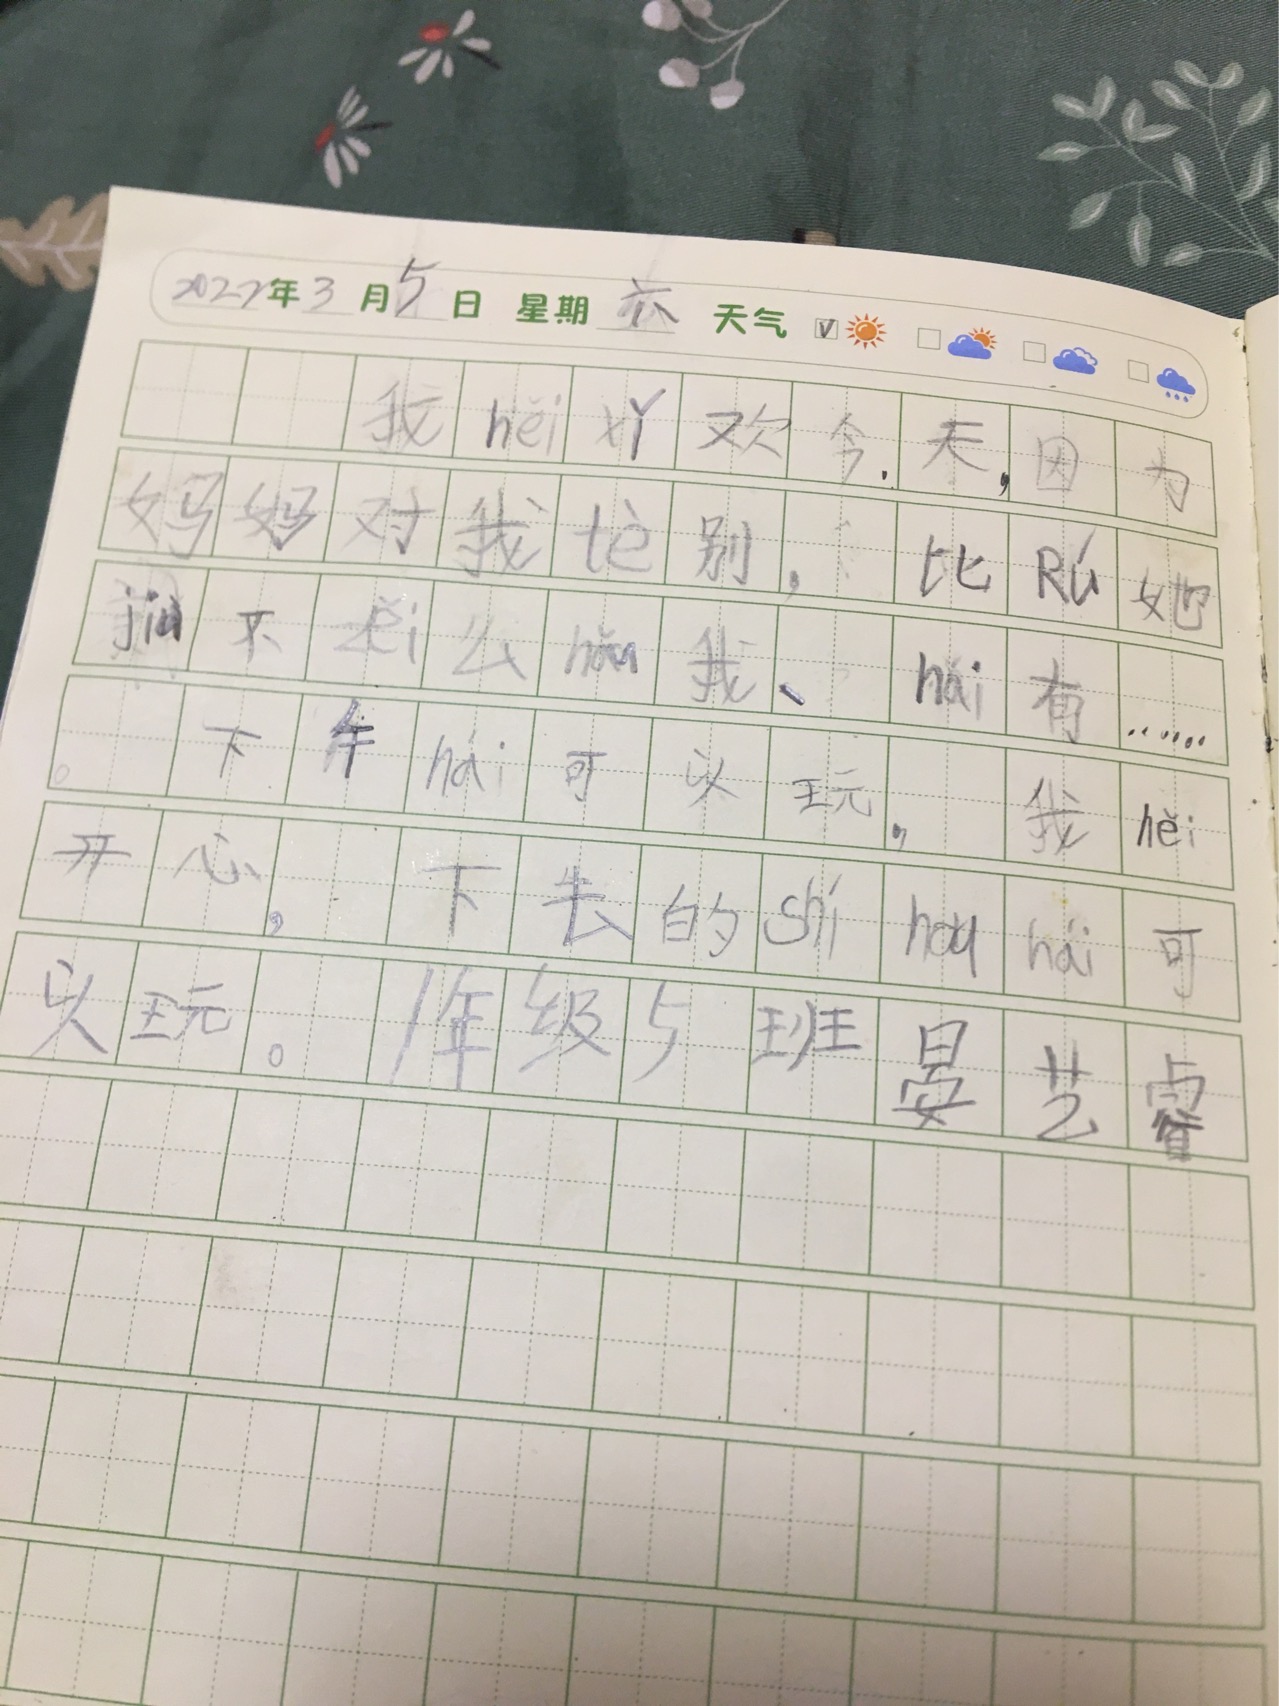 2022年3月5日 星期六 天气
我hěi xǐ欢今天,因为
妈妈对我tè别,比Rú她
jiù不zěi么hǒu我、hái有……
。下午hái可以玩,我hěi
开心,下去的shí hou hái可
以玩。1年级5班晏艺睿